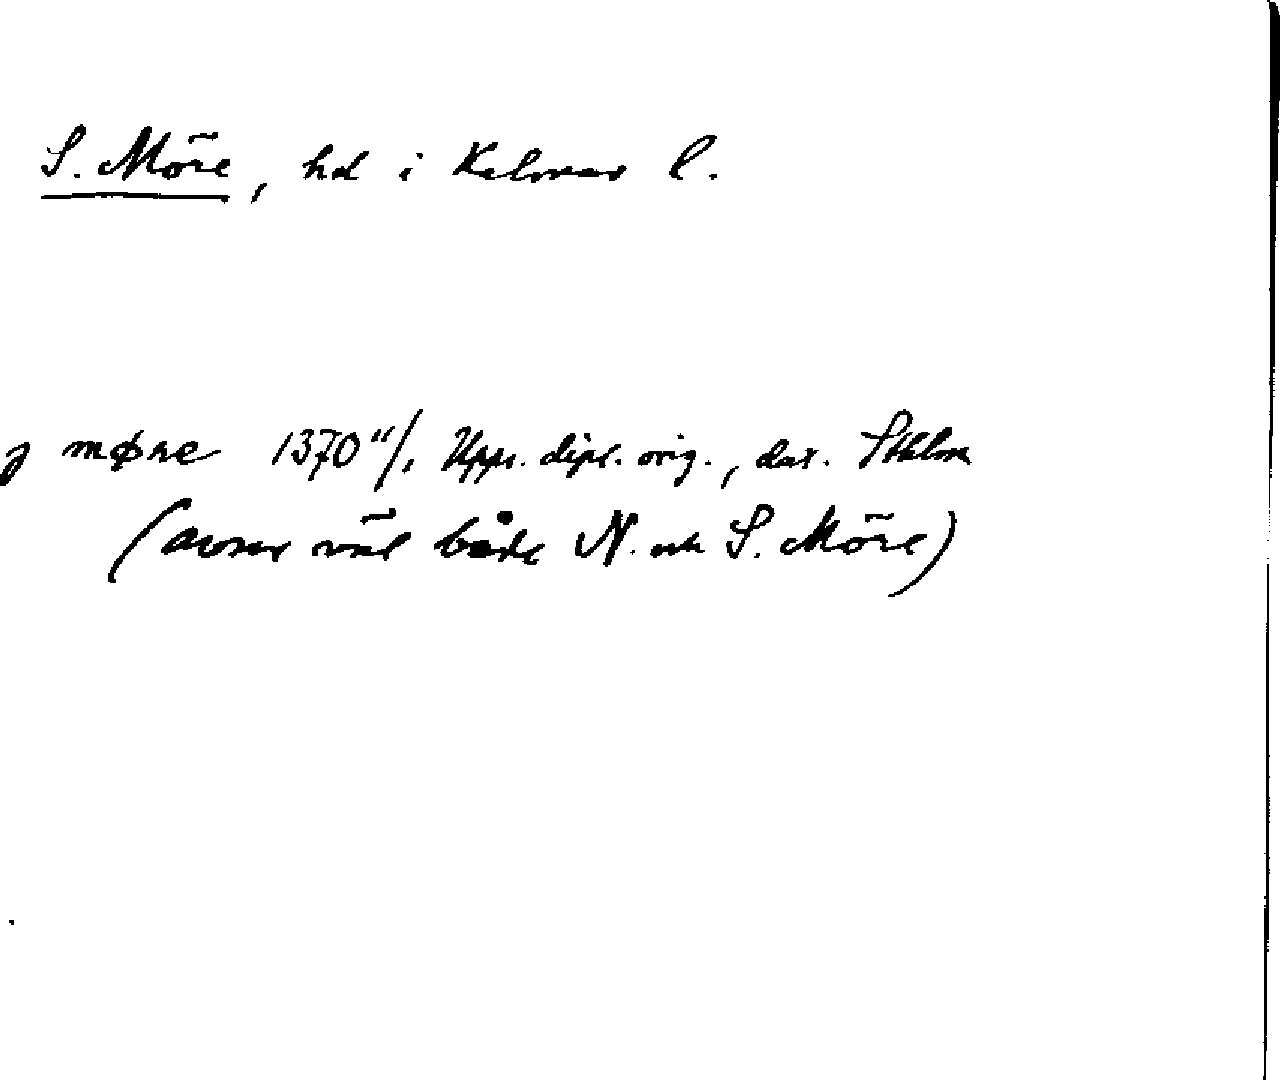 S. Möre, hd i Kalmar l.
j møre 1370 11/1 Upps. dipl. orig., dat. Sthlm
(avser väl både N. och S. Möre)